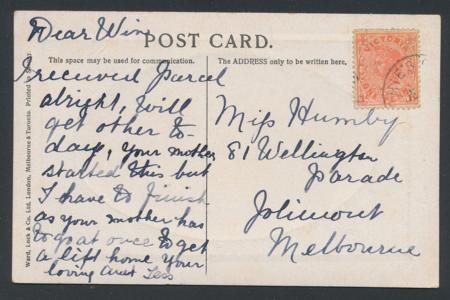 Dear Win
POST CARD.
This space may be used for communication.
I received Parcel
alright, will
get other to-
day, your mother
started this but
I have to finish
as your mother has
to go at once to get
a lift home your
loving Aunt Tess
The ADDRESS only to be written here,
Miss Humby
81 Wellington
Parade
Jolimont
Melbourne
VICTORIA
Ward, Lock & Co. Ltd. London, Melbourne & Toronto. Printed in